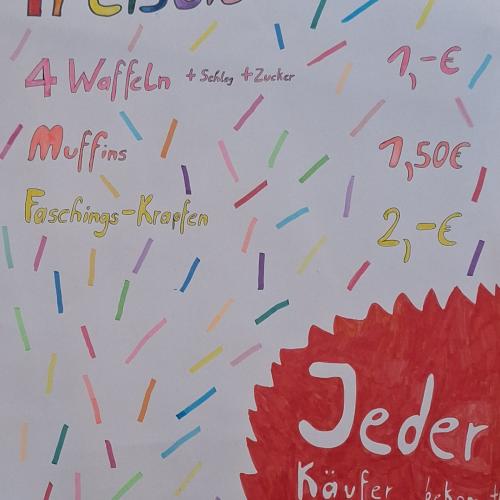 4 Waffeln + Schlag + Zucker 1,-€
Muffins 1,50€
Faschings-Krapfen 2,-€
Jeder
Käufer